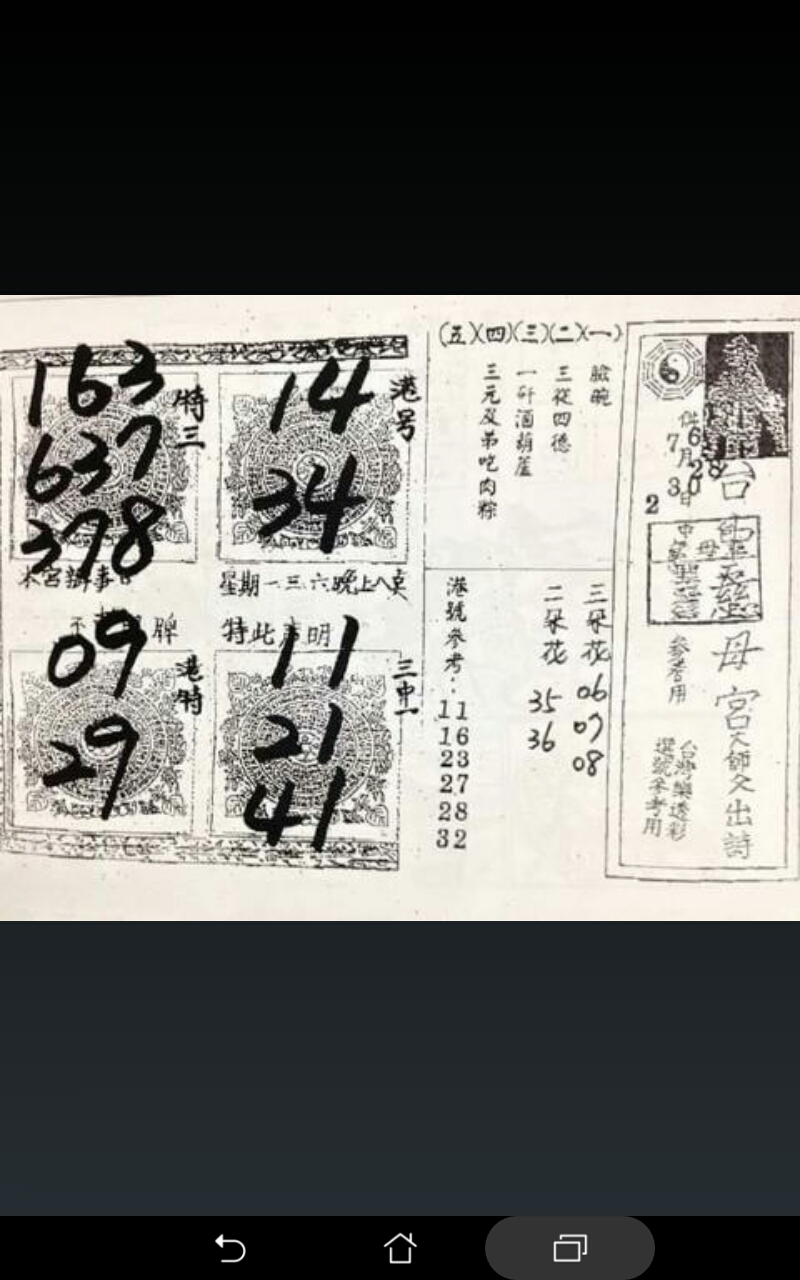 母宮天師父出詩
供
6 28
7月30日
2
參考用
台灣樂透彩
選號參考用
(五)(四)(三)(二)(一)
臉晚
三從四德
一矸酒葫蘆
三元及弟吃肉粽
三朵花 06 07 08
二朵花 35 36
港號參考:
11
16
23
27
28
32
港号
14
34
特三
163
637
378
星期一三六晚上八点
本宮辦事日
特此声明
三中一
11
21
41
港特
09
29